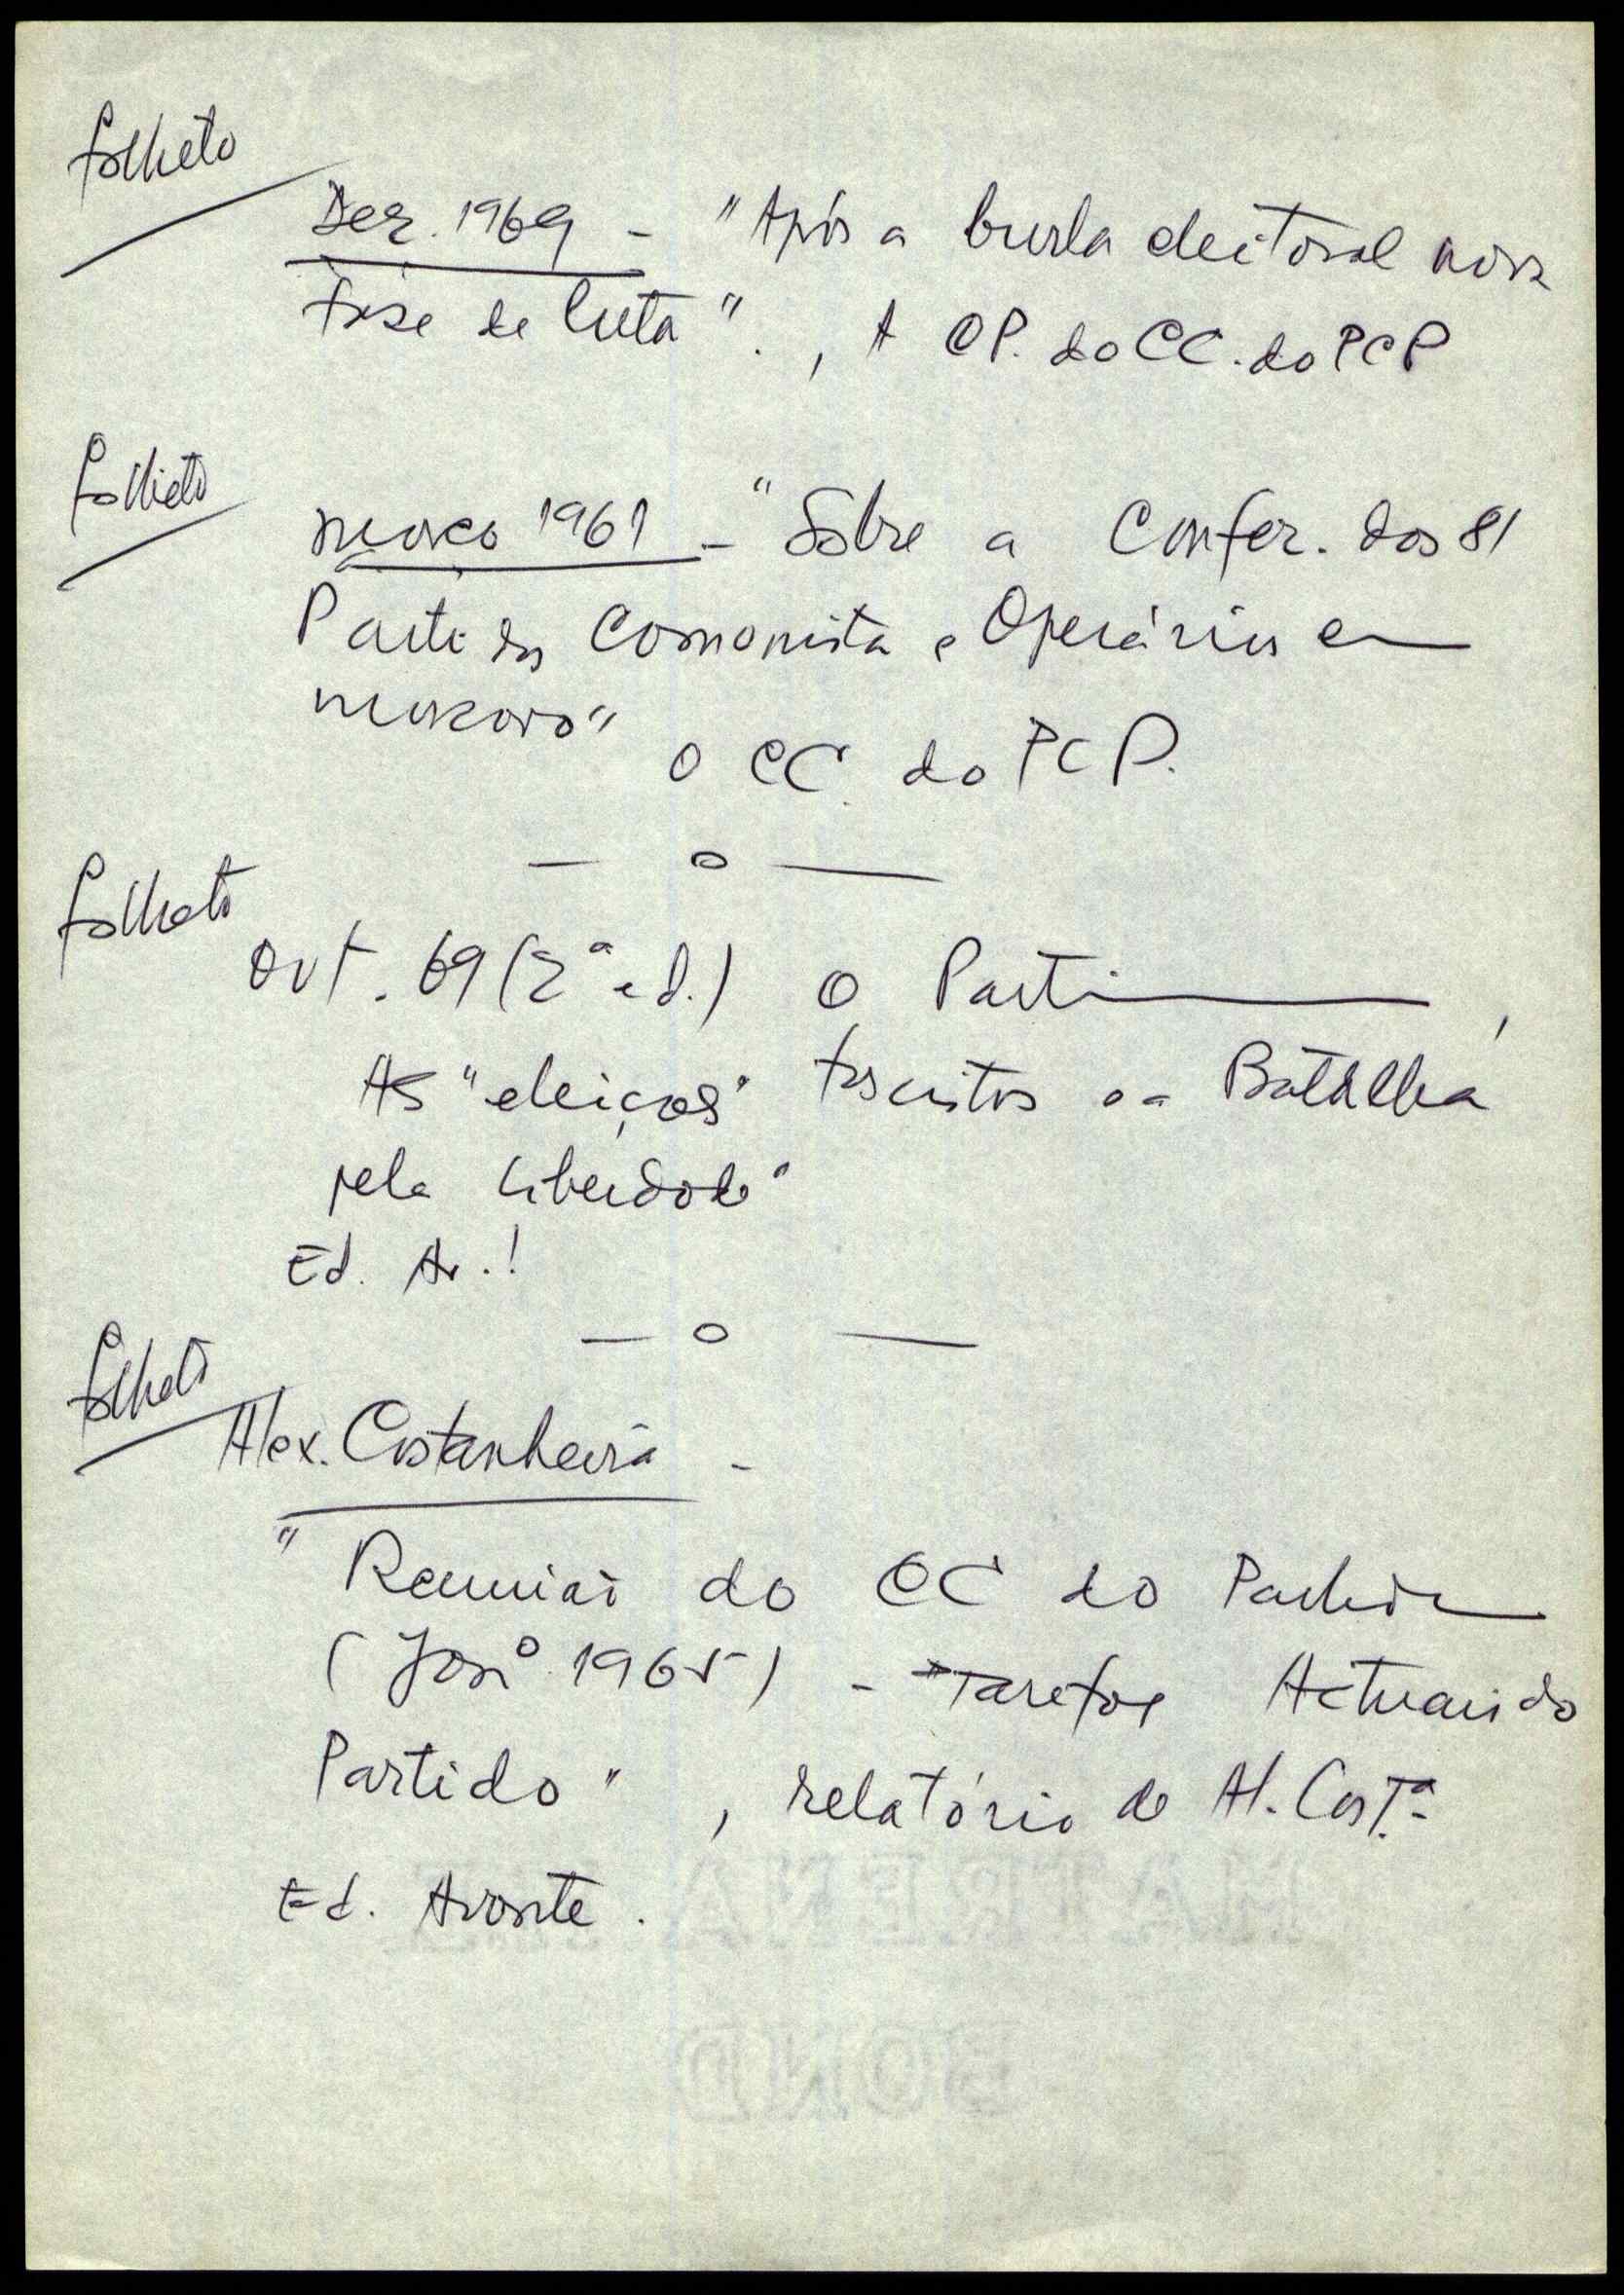 folheto
Dez. 1969 - "Após a burla eleitoral nova
fase de luta"., A CP. do CC. do PCP
folheto
março 1961 - "Sobre a Confer. dos 81
Partidos Comunista e Operários em
moscovo"
O CC. do PCP.
— o —
folheto
Out. 69 (2ª ed.) O Parti—,
As "eleições" fascistas e a Batalha
pela Liberdade"
Ed. Av.!
— o —
folheto
Alex. Castanheira -
"Reunião do CC do Partido
(Jan° 1965) - Tarefas Actuais do
Partido", relatório de Al. Cast.ª
Ed. Avante.
BOND